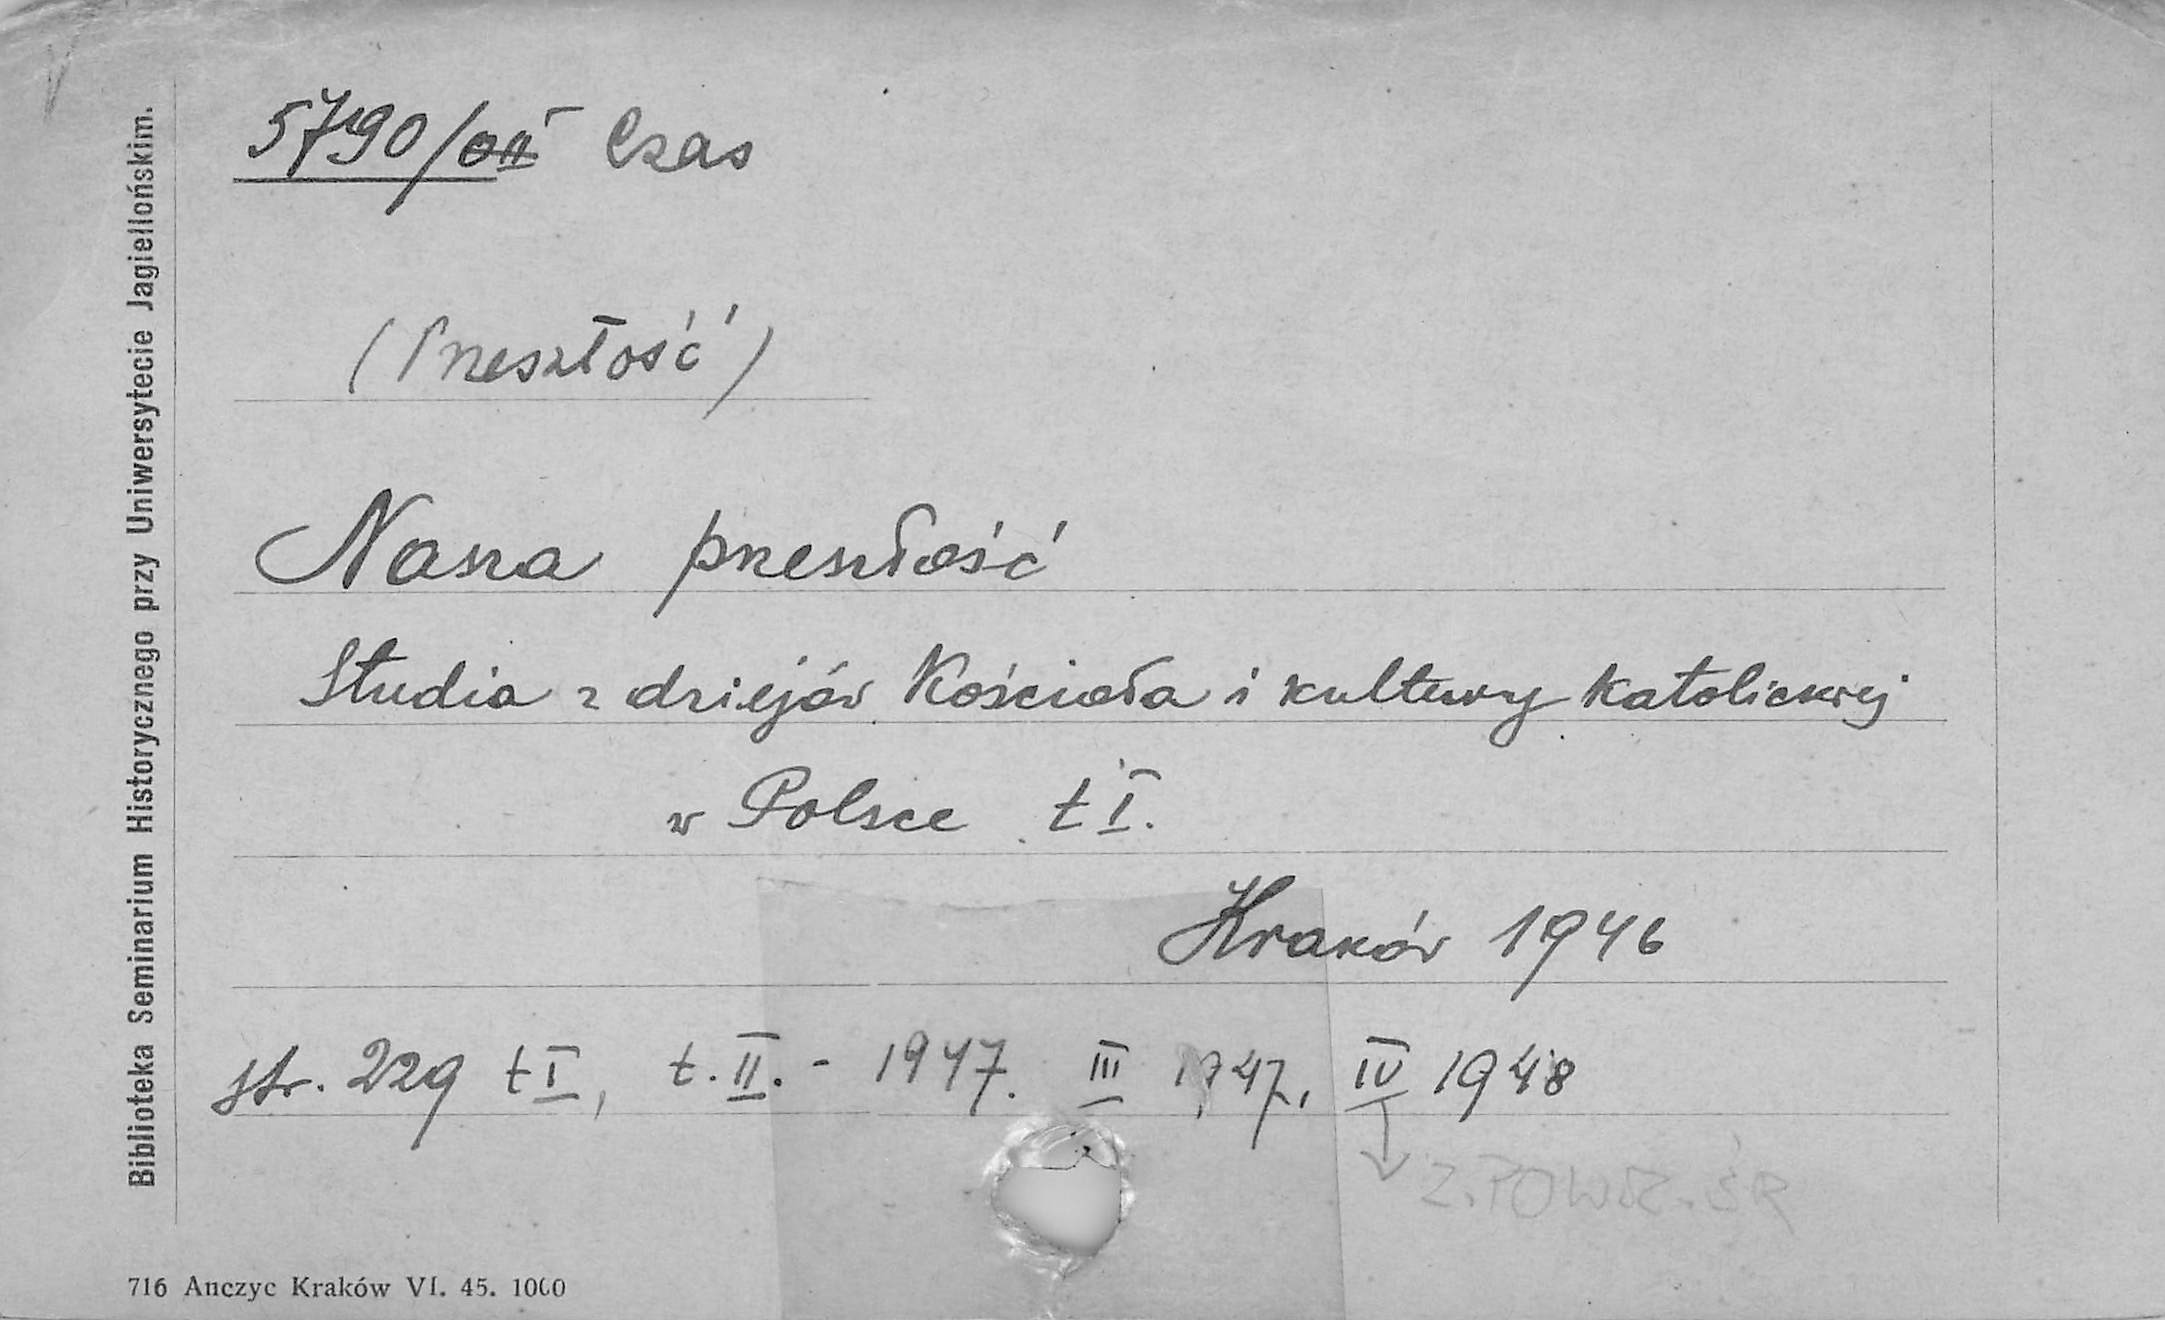 5790/II Czas
(Przeszłość)
Nasza przeszłość
Studia z dziejów Kościoła i kultury katolickiej
w Polsce t I.
Kraków 1946
str. 229 t I, t. II. - 1947. III 1947, IV 1948
Z. POWSZ. ŚR
Biblioteka Seminarium Historycznego przy Uniwersytecie Jagiellońskim.
716 Anczyc Kraków VI. 45. 1000